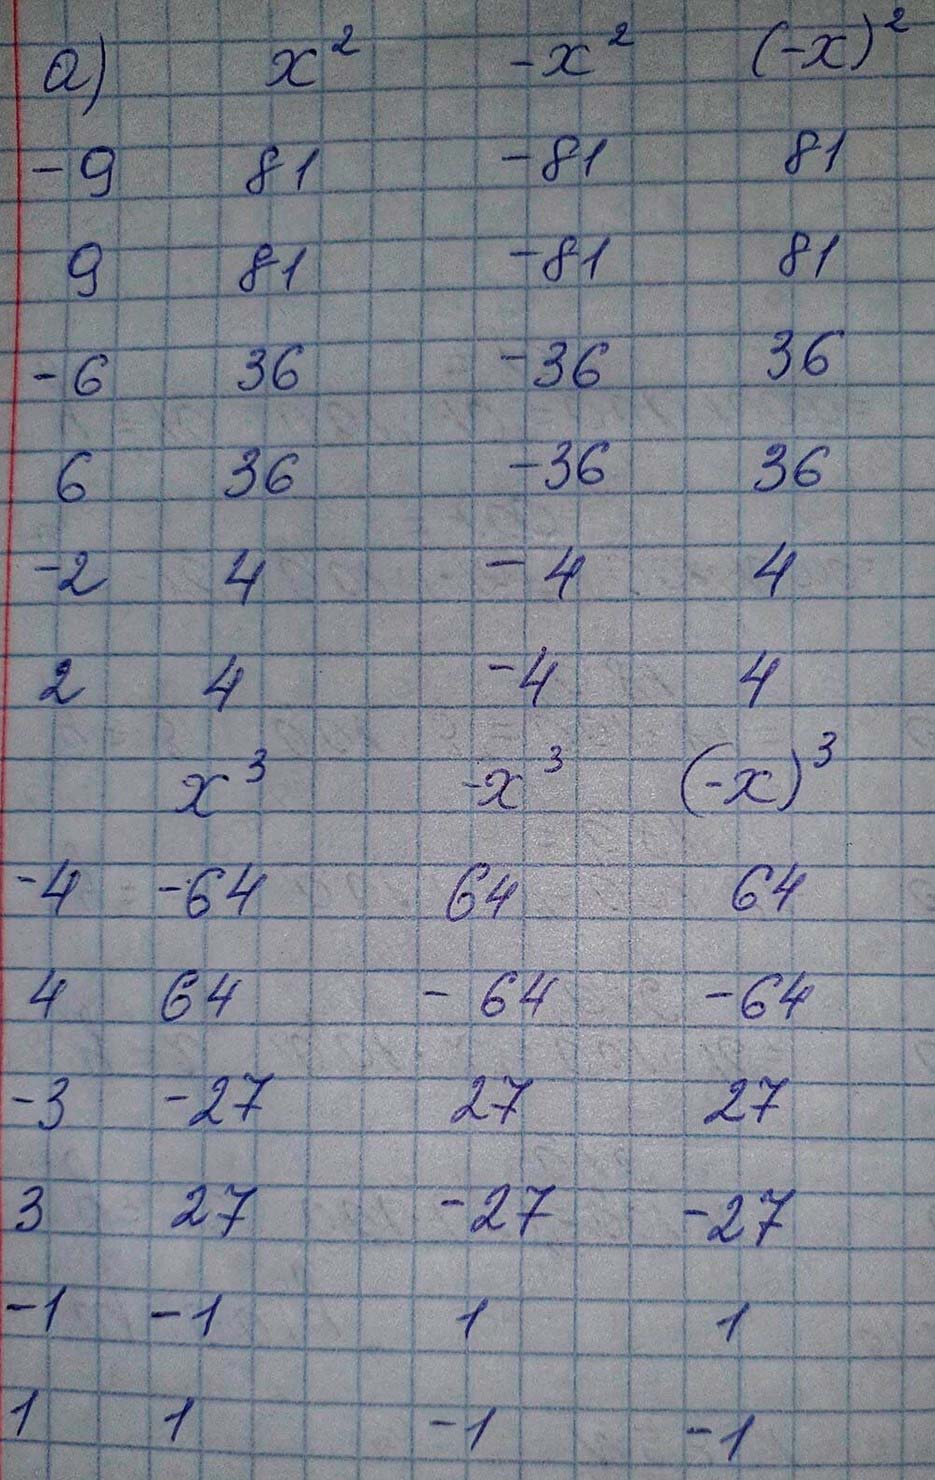 а) x² -x² (-x)²
-9 81 -81 81
9 81 -81 81
-6 36 -36 36
6 36 -36 36
-2 4 -4 4
2 4 -4 4
x³ -x³ (-x)³
-4 -64 64 64
4 64 -64 -64
-3 -27 27 27
3 27 -27 -27
-1 -1 1 1
1 1 -1 -1